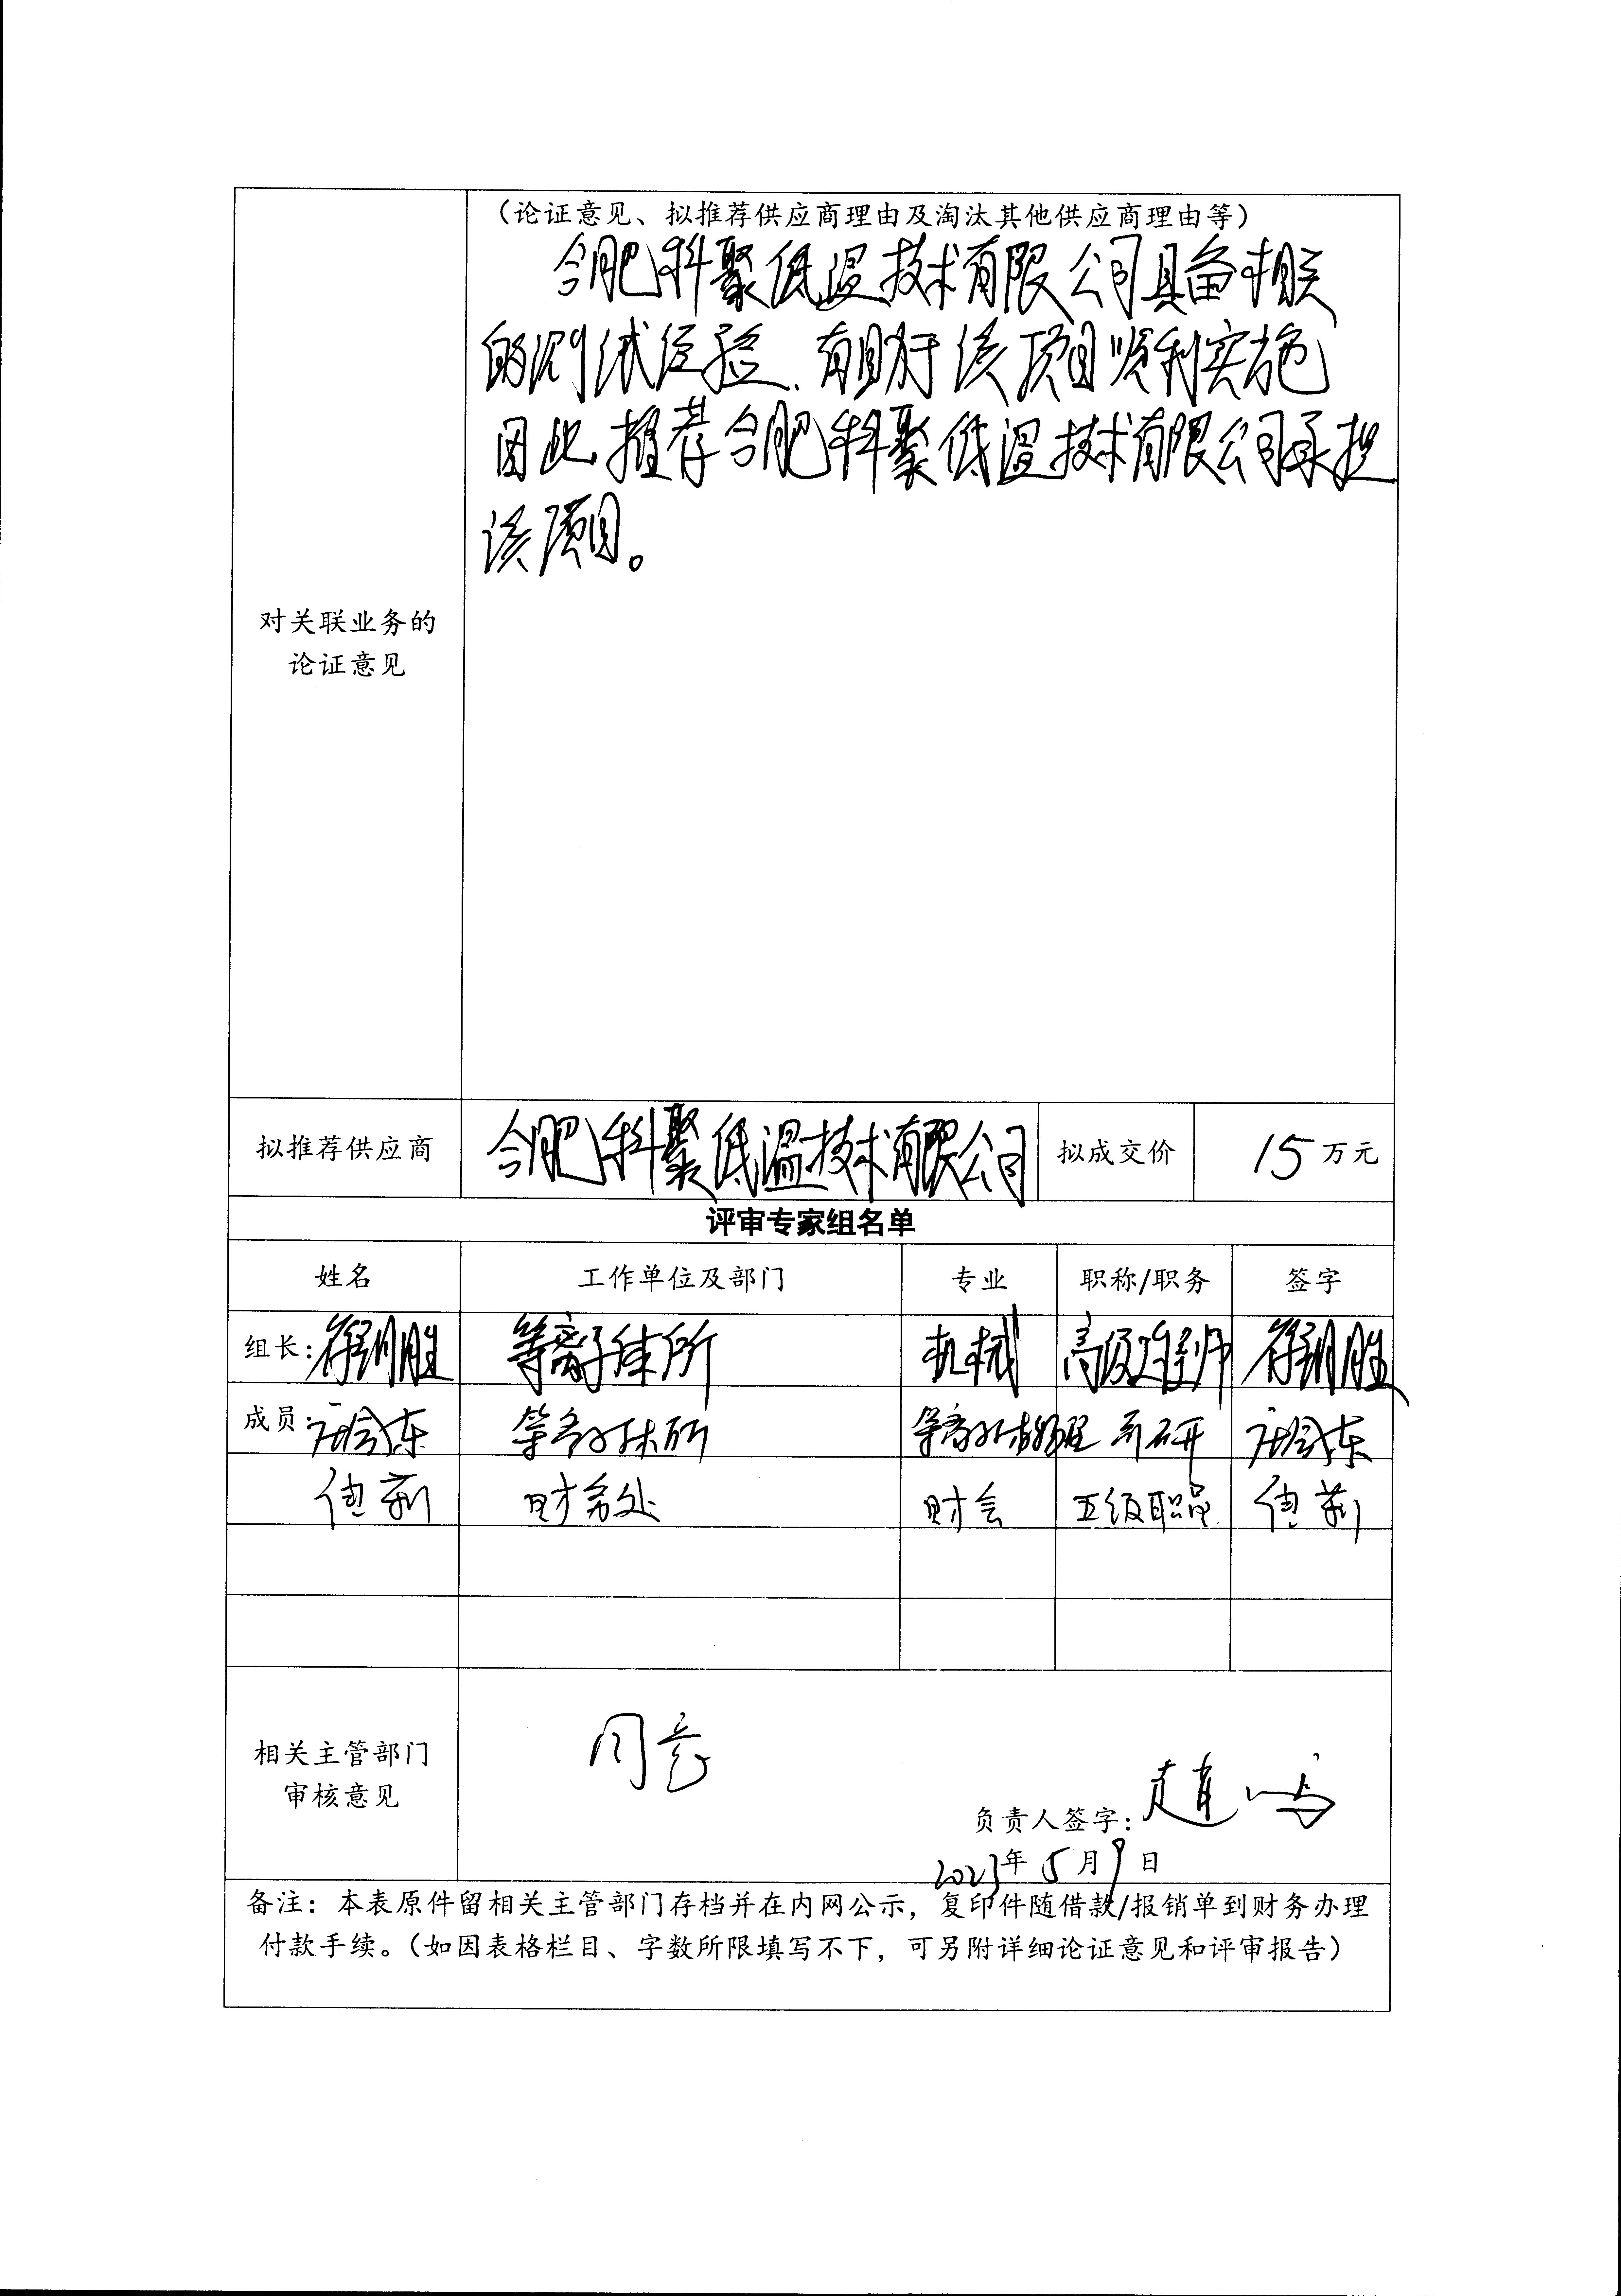 （论证意见、拟推荐供应商理由及淘汰其他供应商理由等）
合肥科聚低温技术有限公司具备相关
的测试经验、有助于该项目顺利实施
因此推荐合肥科聚低温技术有限公司承担
该项目。
对关联业务的
论证意见
拟推荐供应商 合肥科聚低温技术有限公司 拟成交价 15 万元
评审专家组名单
姓名 工作单位及部门 专业 职称/职务 签字
组长： 等离子体所 机械 高级工程师
成员： 等离子体所 等离子体物理 副研
财务处 财会 五级职员
相关主管部门
审核意见
同意
负责人签字：
2023年5月9日
备注：本表原件留相关主管部门存档并在内网公示，复印件随借款/报销单到财务办理
付款手续。（如因表格栏目、字数所限填写不下，可另附详细论证意见和评审报告）